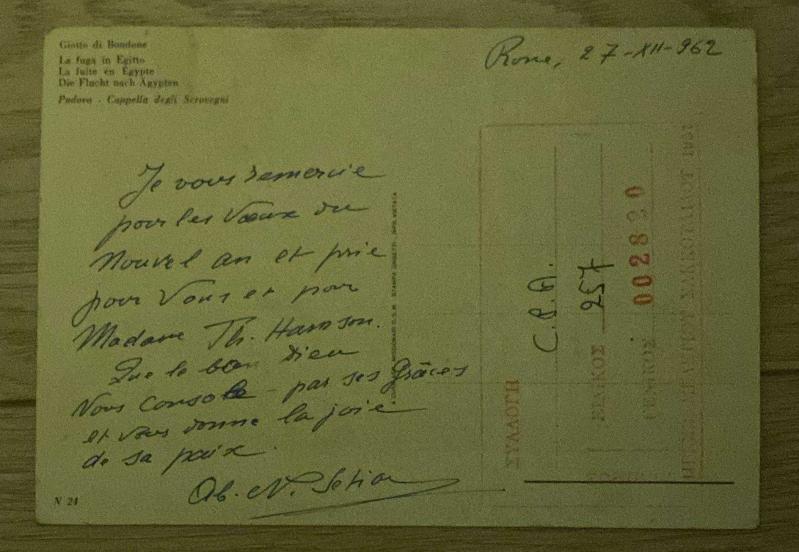 Giotto di Bondone
La fuga in Egitto
La fuite en Égypte
Die Flucht nach Ägypten
Padova - Cappella degli Scrovegni
Rome, 27-XII-962
Je vous remercie
pour les Vœux du
Nouvel an et prie
pour Vous et pour
Madame Th.
Que le bon Dieu
Vous console par ses Grâces
et vous donne la joie
de sa paix.
Ab. N.
N 24
ΣΥΛΛΟΓΗ
ΕΙΔΙΚΟΣ 257
ΓΕΝΙΚΟΣ 002820